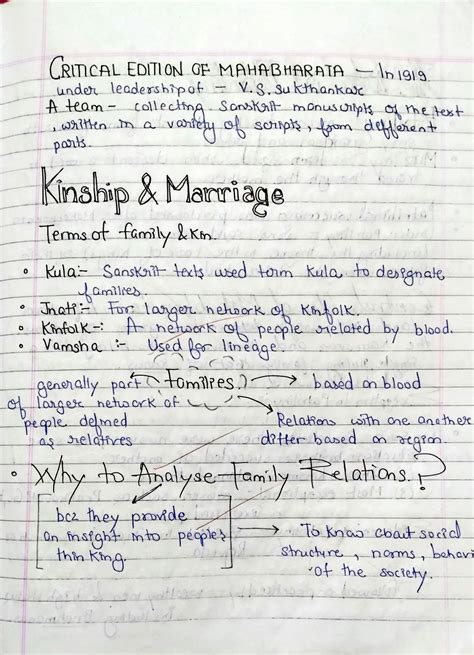 CRITICAL EDITION OF MAHABHARATA — In 1919
under leadership of – V.S. Sukthankar
A team – collecting Sanskrit manuscripts of the text
, written in a variety of scripts, from different
parts.
Kinship & Marriage
Terms of family & Kin.
• Kula:- Sanskrit texts used term Kula to designate
families.
• Jnati:- For larger network of Kinfolk.
• Kinfolk-: A network of people related by blood.
• Vamsha :- Used for lineage.
generally part ← Families → based on blood
of larger network of
people defined
as relatives
Relations with one another
differ based on region.
• Why to Analyse Family Relations.?
bcz they provide
an insight into people's
thinking.
→ To know about social
structure, norms, behavi
of the society.